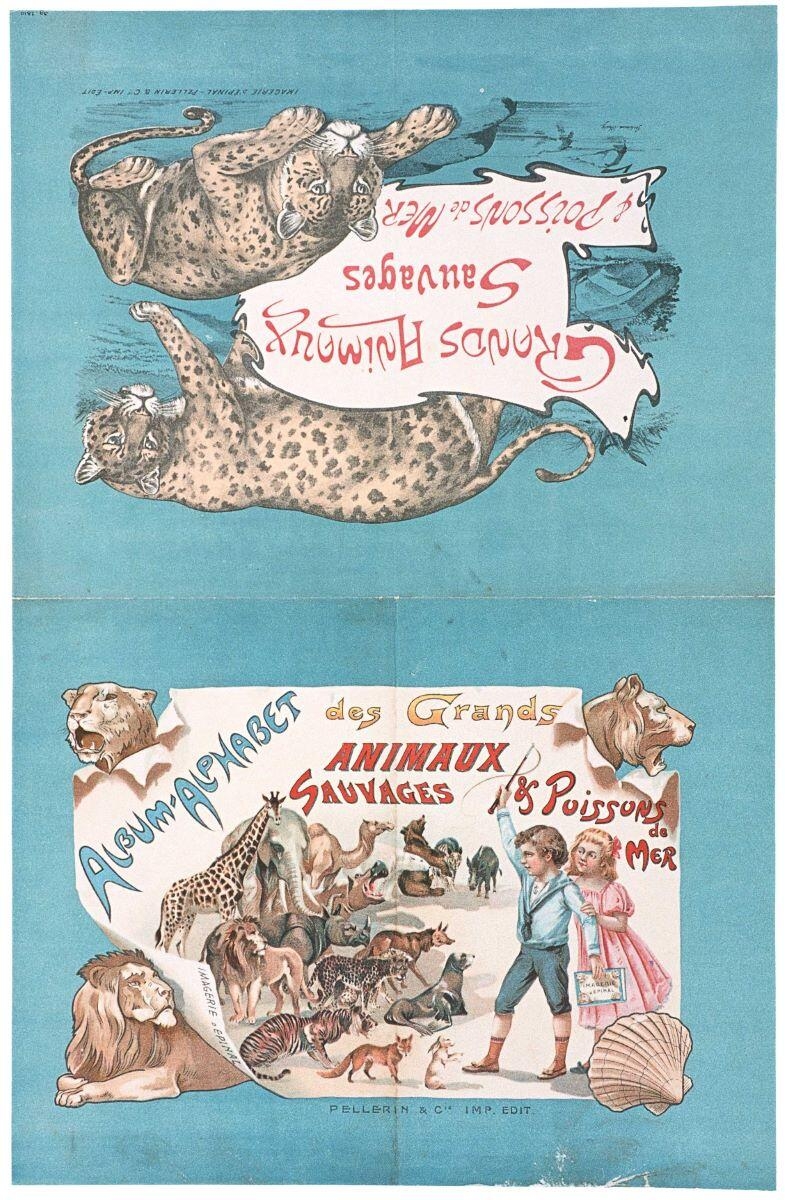 IMAGERIE D'EPINAL - PELLERIN & Cie IMP-EDIT
GRANDS ANIMAUX
SAUVAGES
& POISSONS de MER
ALBUM-ALPHABET
des Grands
ANIMAUX
SAUVAGES
& POISSONS
de
MER
IMAGERIE
d'EPINAL
IMAGERIE D'EPINAL
PELLERIN & Cie IMP. EDIT.